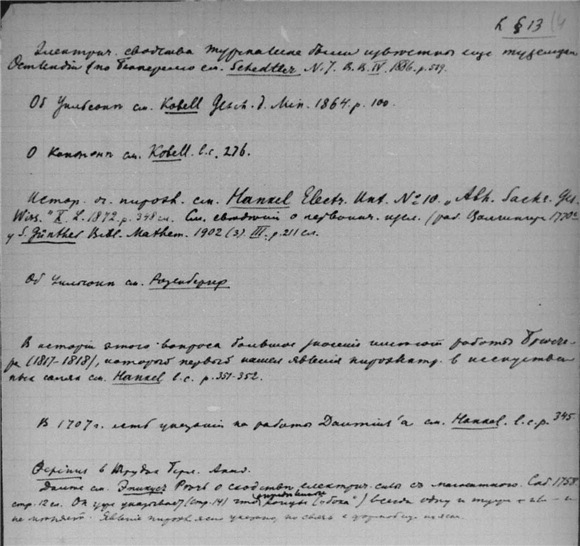 к § 13
Электрич. свойства турмалина были известны еще туземцам
Остиндии (по Беккерелю см. Schedtler. N. J. B. B. IV. 1886. p. 519.
Об Уильсоне см. Kobell Gesch. d. Min. 1864. p. 100.
О Кантоне см. Kobell. l. c. 276.
Истор. оч. пироэл. см. Hankel Electr. Unt. № 10. „Abh. Sächs. Ges.
Wiss." X. L. 1872. p. 348 сл. См. сведения о первонач. иссл. (раб.
у S. Günther Bibl. Mathem. 1902 (3). III. p. 211 сл.
Об Уильсоне см. Розенбергер
В истории этого вопроса большое значение имеют работы Брюсте-
ра (1817-1818), который первый нашел явления пироэлектр. в искусствен
ных солях см. Hankel l. c. p. 351-352.
В 1707 г. есть указания на работы Daumius'a см. Hankel. l. c. p. 345
в Трудах Берл. Акад.
Далее см. Эпинус Речь о сходстве електрич. силы с магнитною. Спб 1758
стр. 12 сл. Он уже указывает (стр. 14) что концы ("бока") всегда одну и ту же + или -
не меняют. Явления